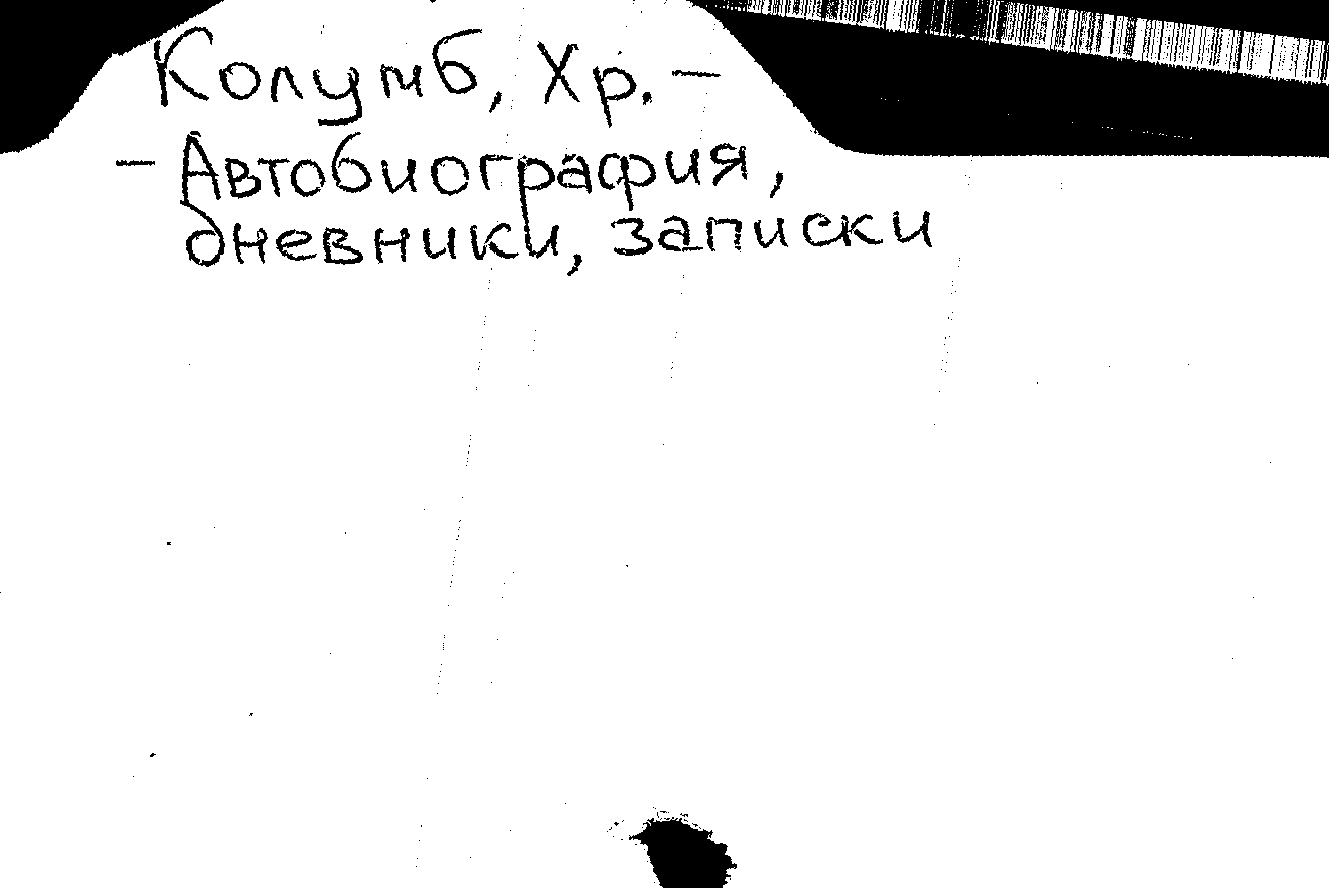 Колумб, Хр. —
— Автобиография,
дневники, записки